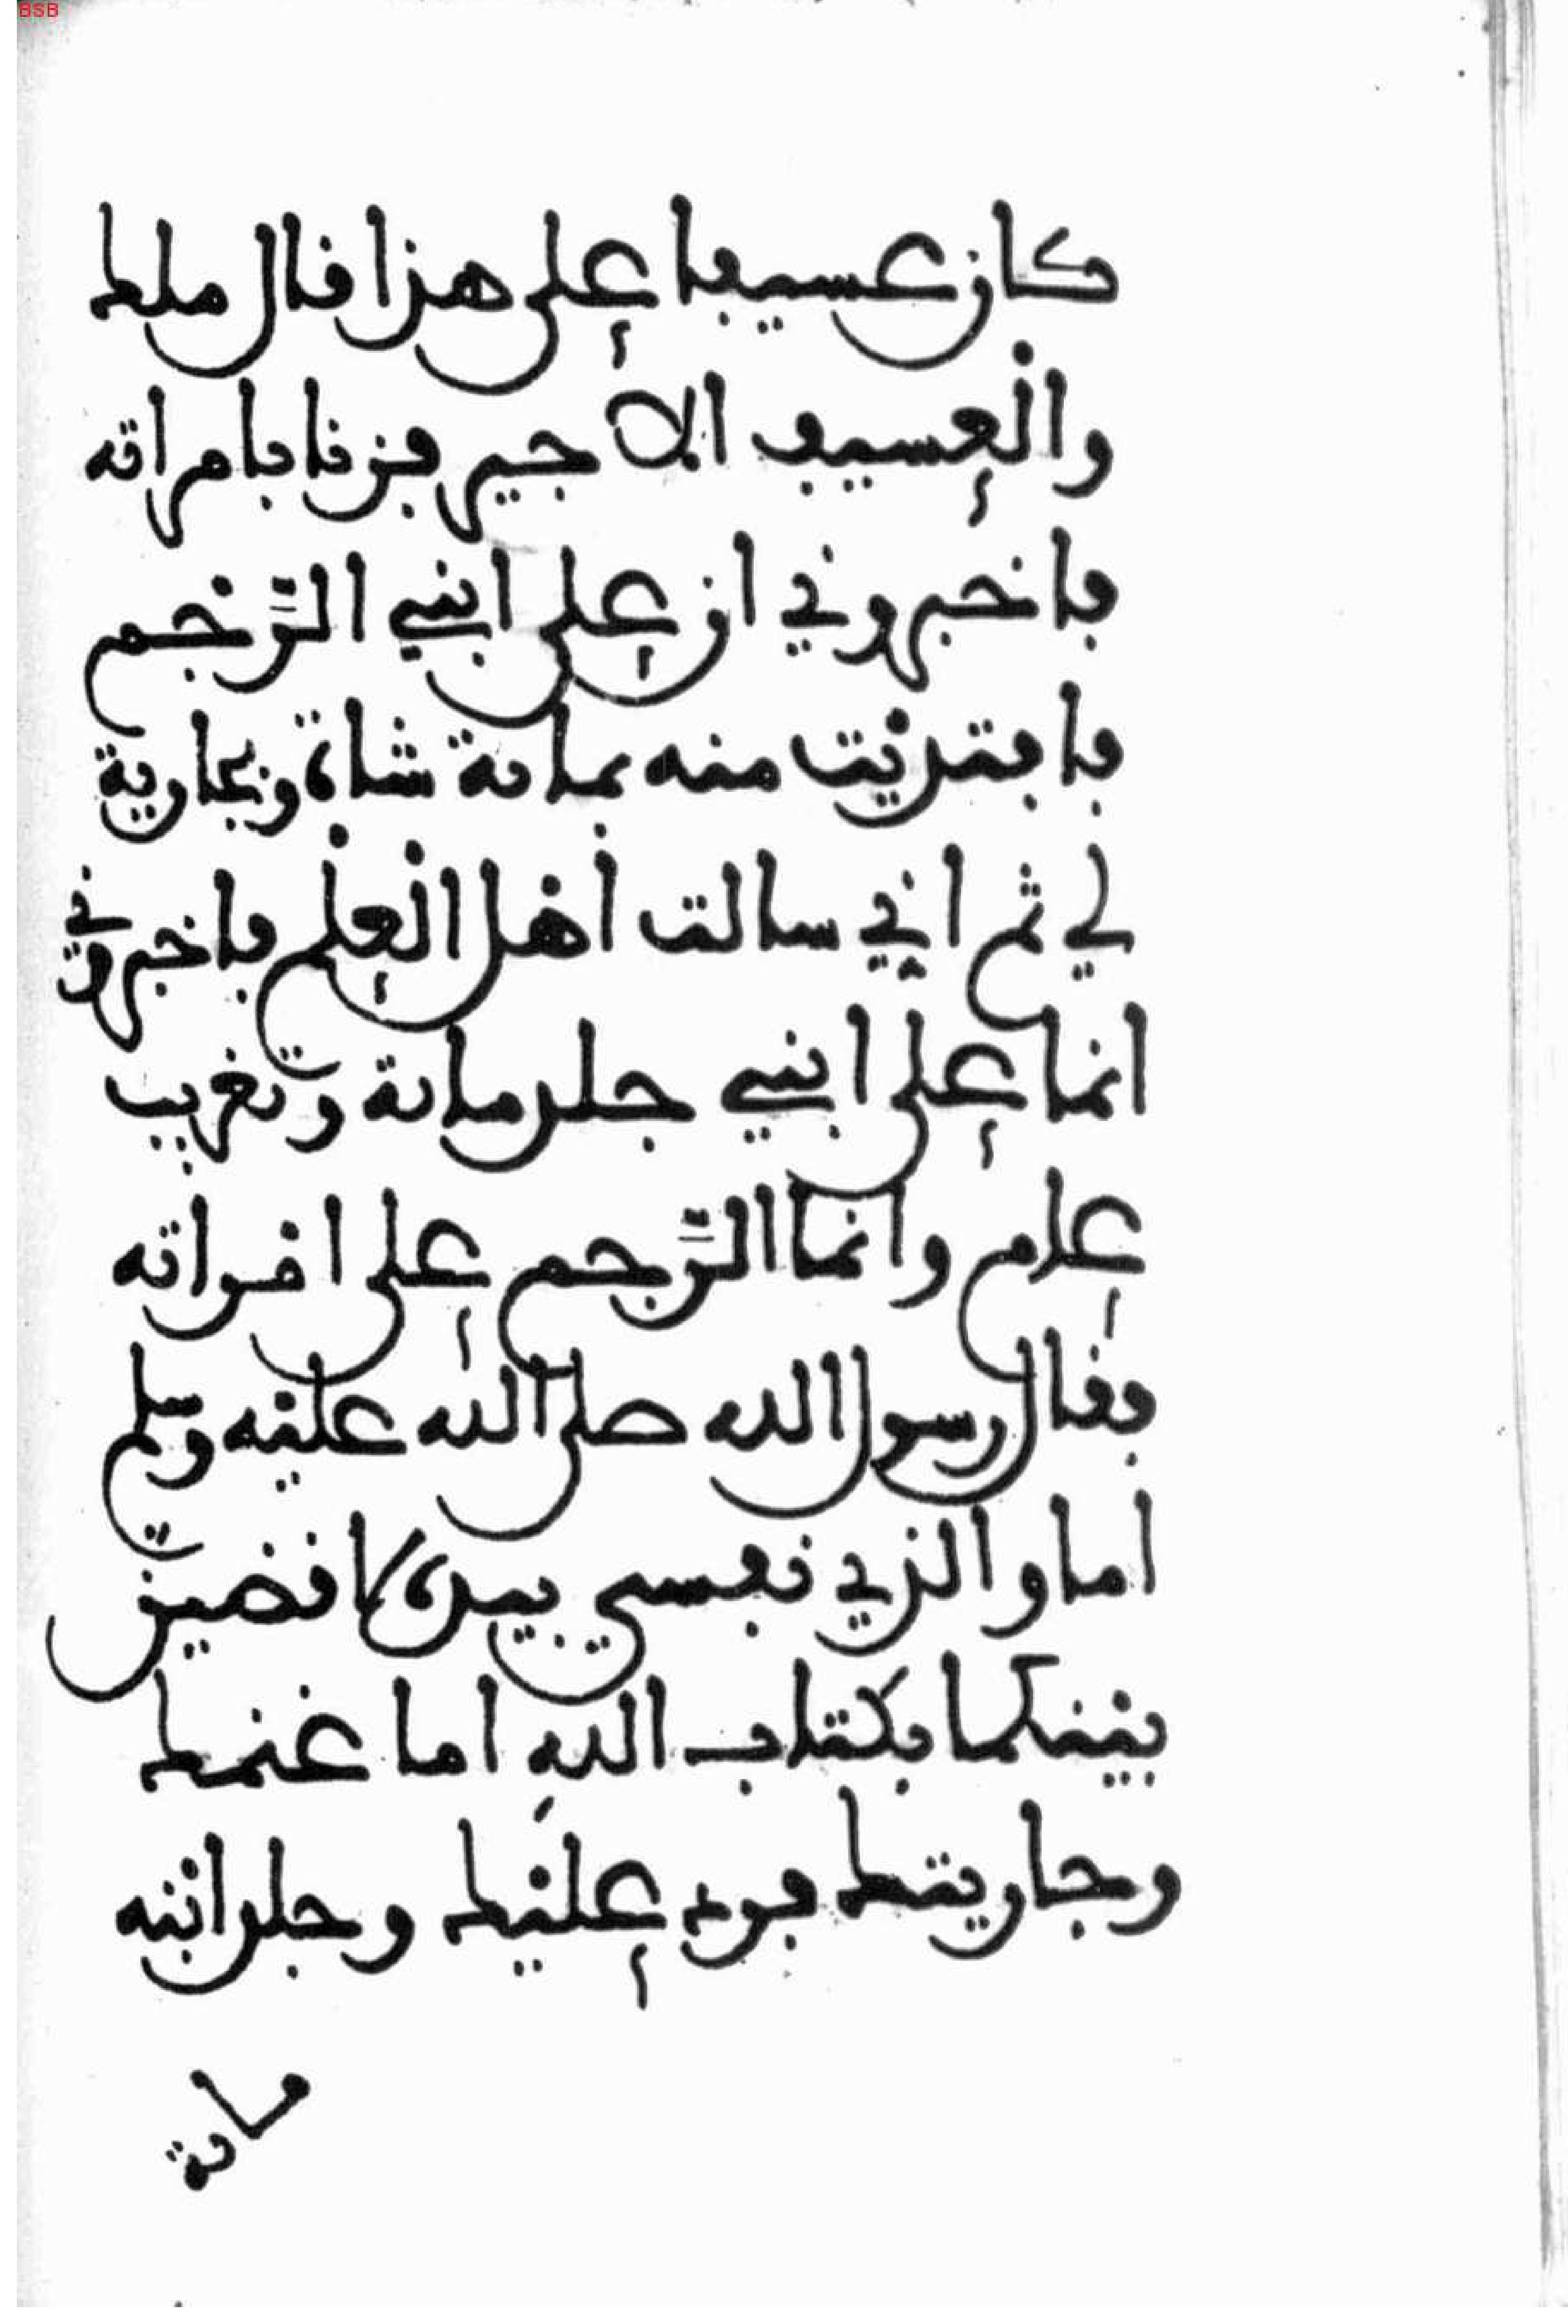 BSB
كان عسيفا على هذا قال ملك
والعسيف الاجير فزنا بامراته
فاخبروني ان على ابني الرَّجم
فافتديْت منه بمائة شاة وبجارية
لي ثم اني سالت أهل الْعلْم فاخبروني
انما على ابني جلد مائة وتغريب
عام وانما الرَّجم على امراته
فقال رسول الله صلى الله عليه وسلم
اما والذي نفسي بيده لاقضينّ
بينكما بكتاب اللهِ اما غنمك
وجاريتك فرد عليْك وجلد ابنه
مائة